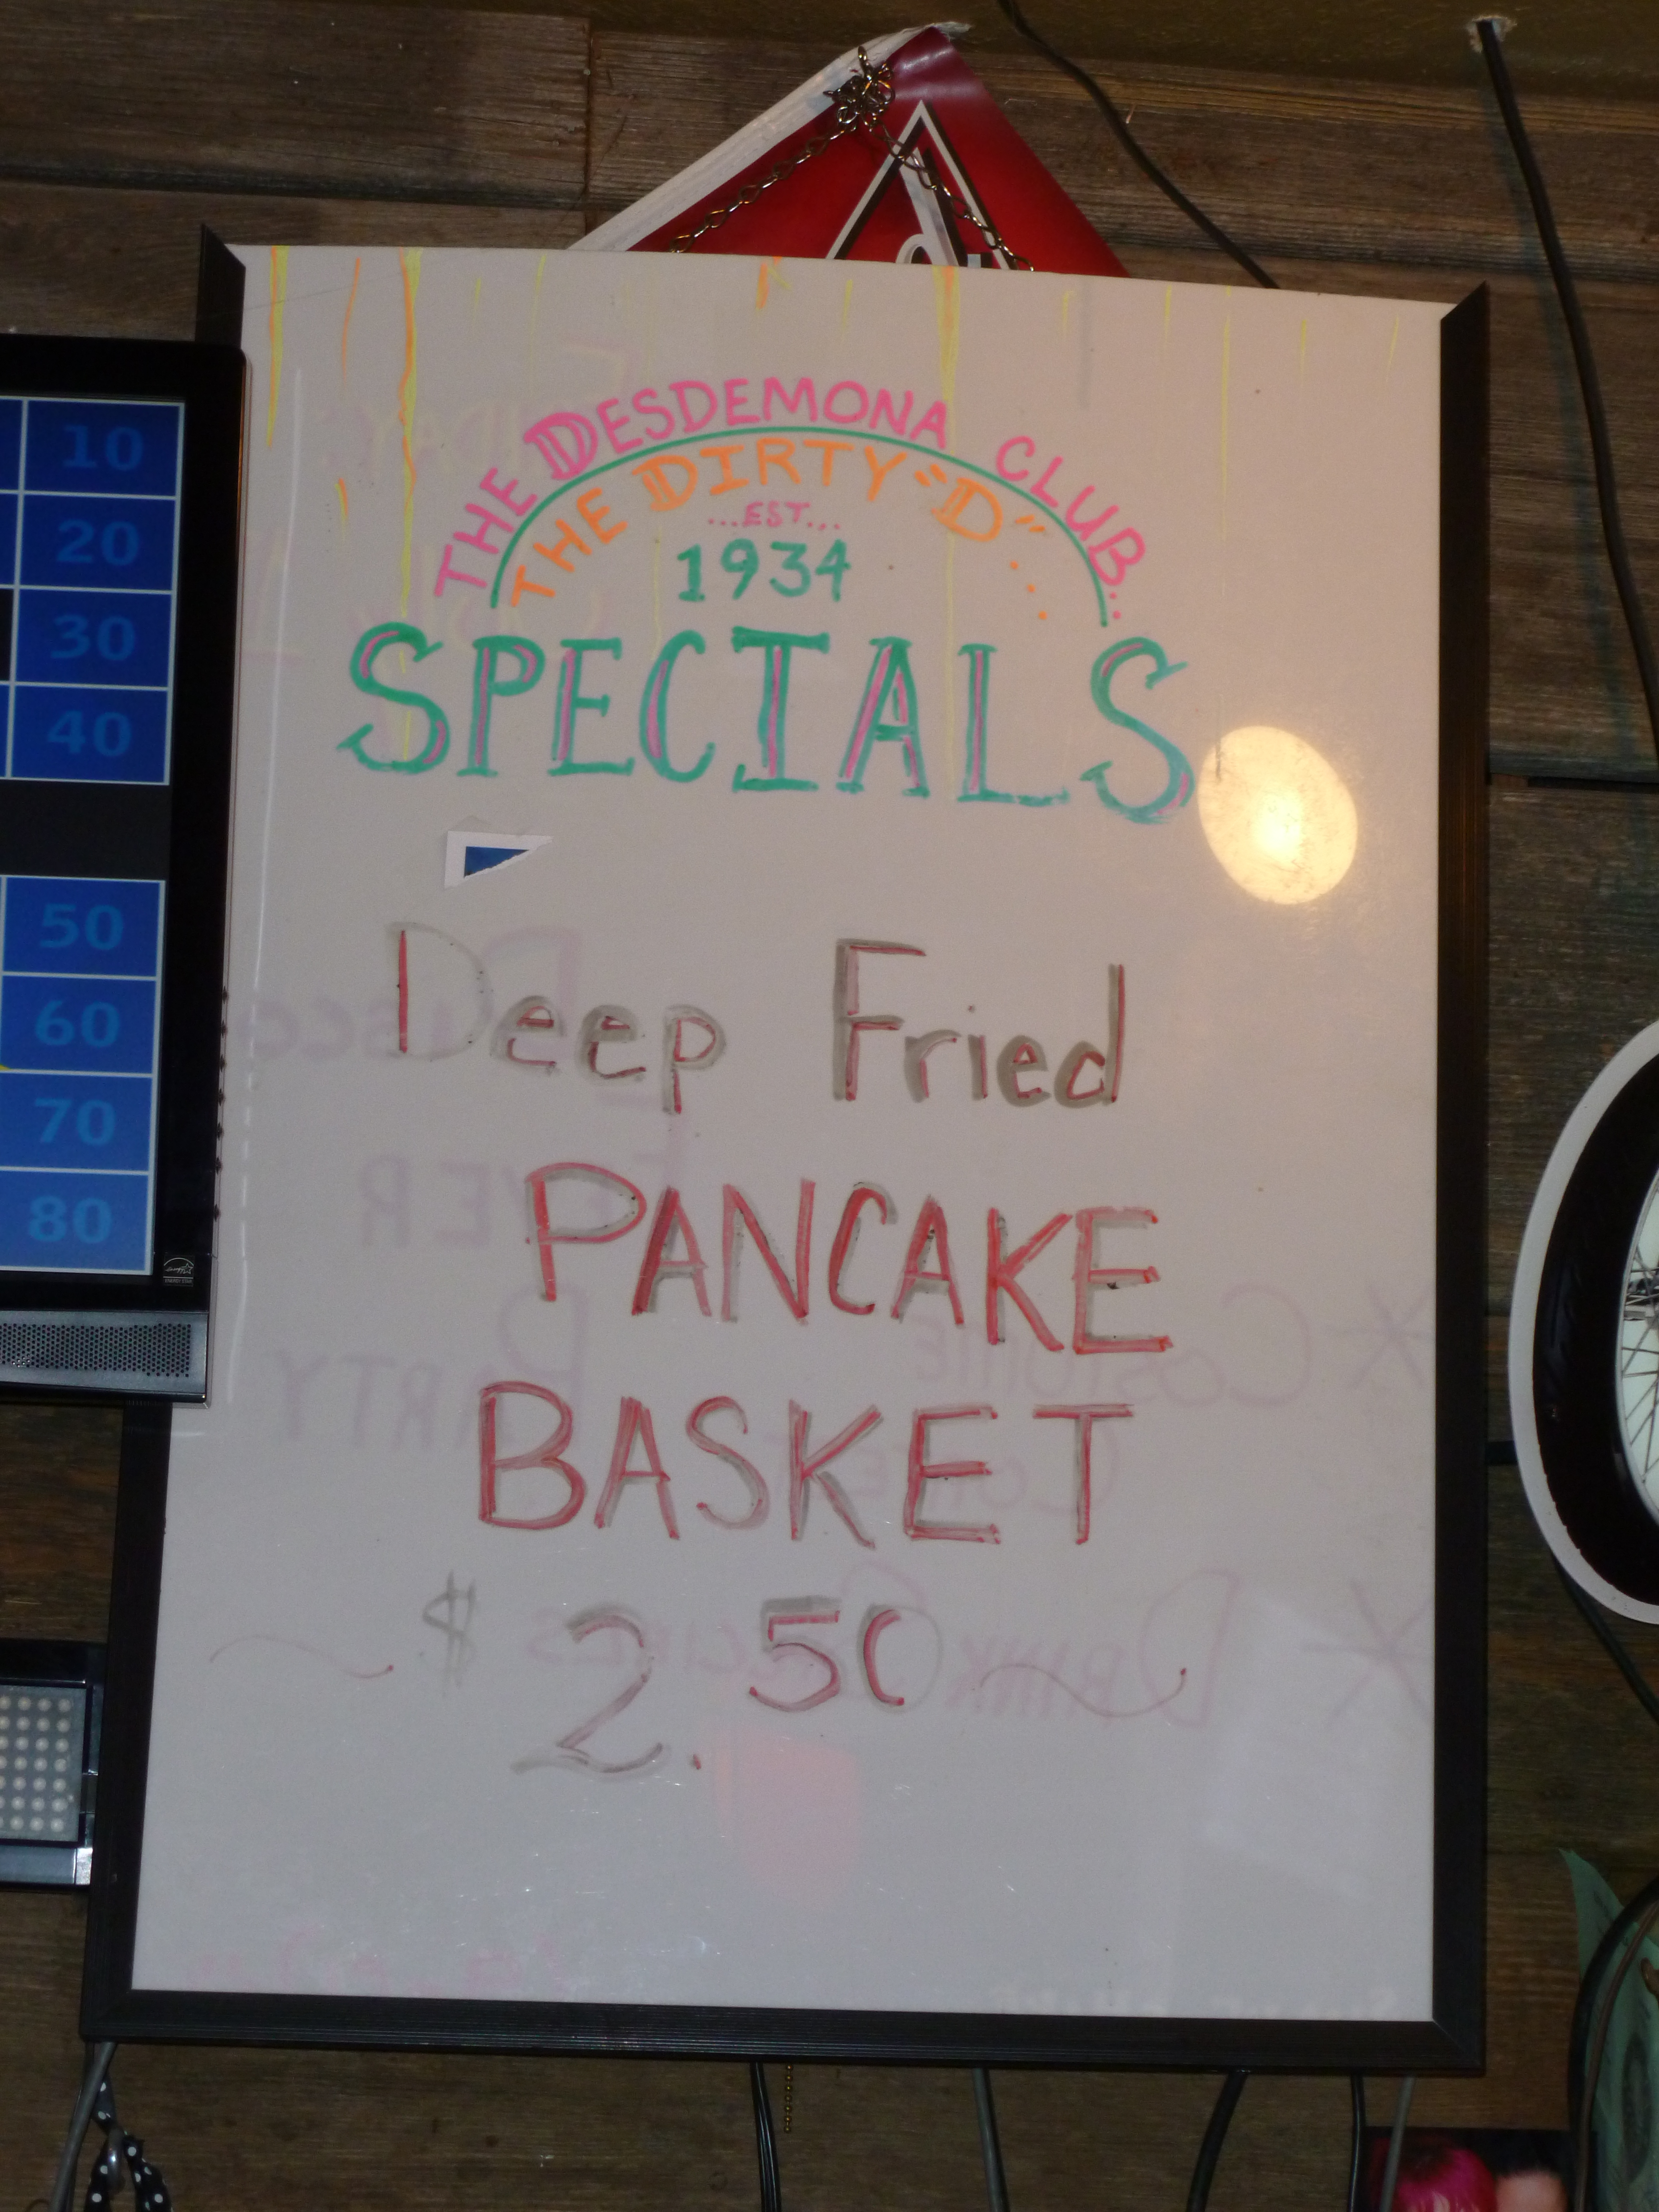 THE DESDEMONA CLUB...
THE DIRTY "D"...
...EST...
1934
SPECIALS
Deep Fried
PANCAKE
BASKET
$2.50
10
20
30
40
50
60
70
80